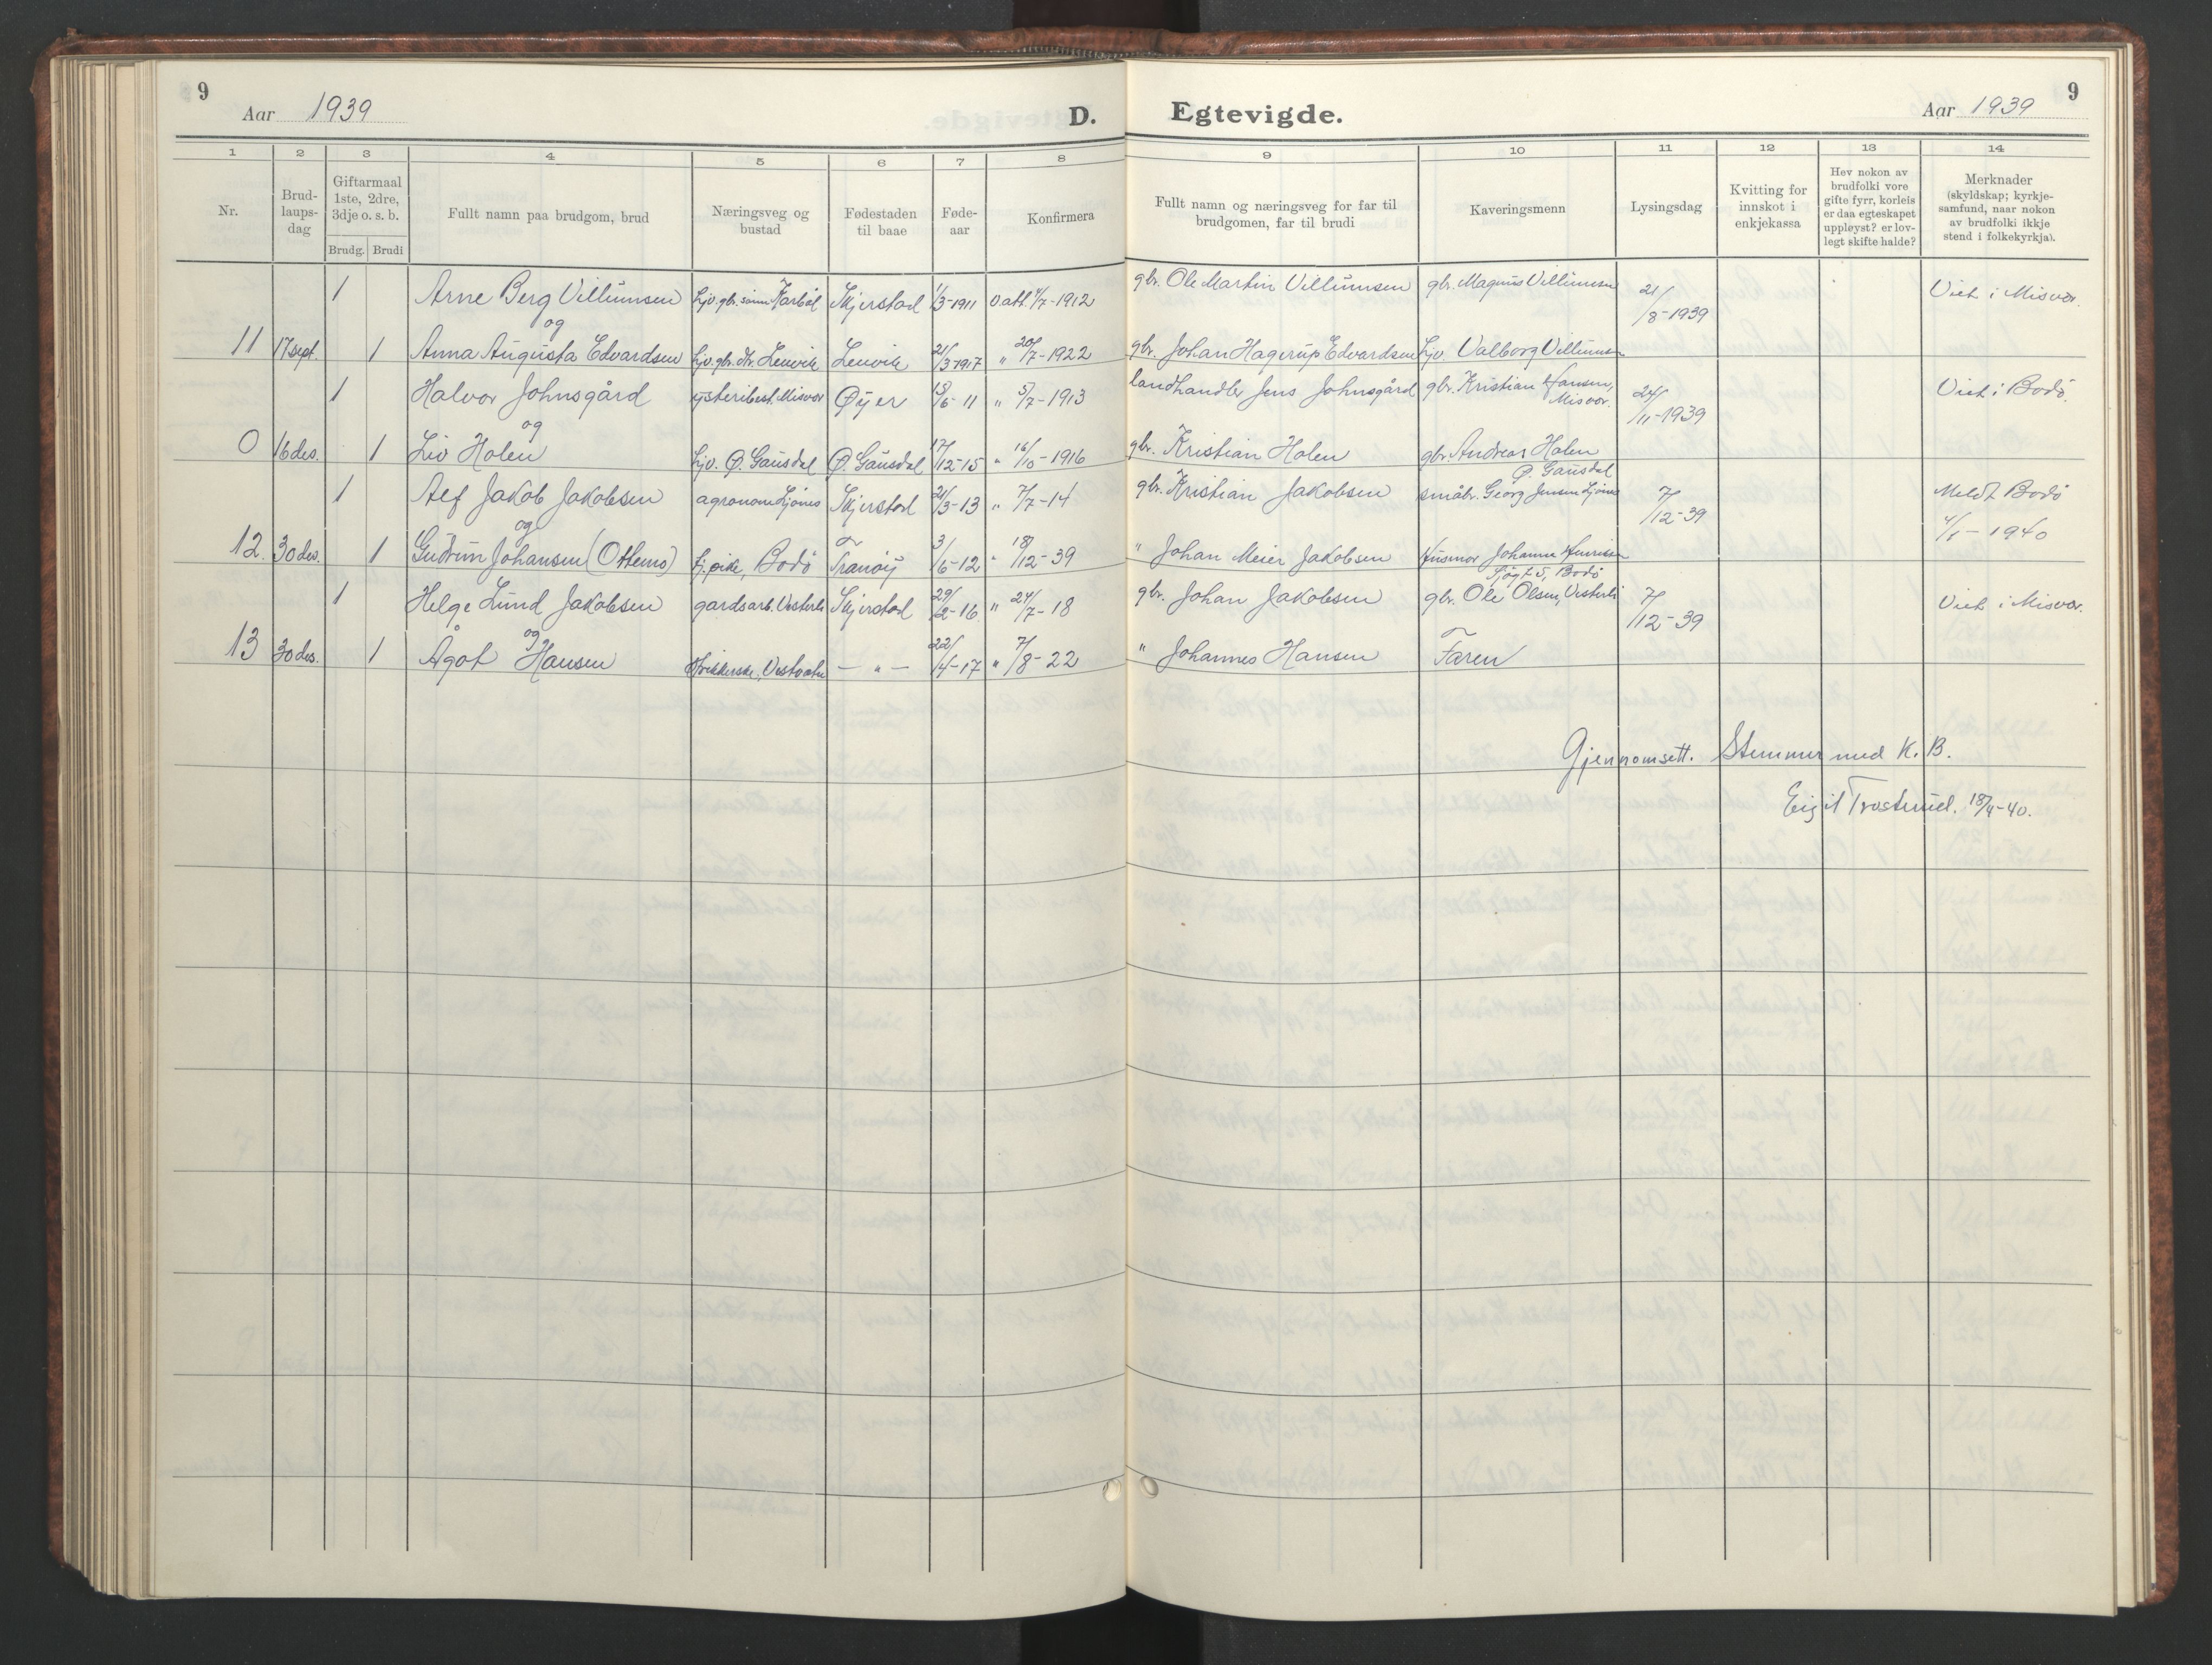 9
Aar 1939
D.
1 2 3 4 5 6 7 8
Nr.
Brud-
laups-
dag
Giftarmaal
1ste, 2dre,
3dje o. s. b.
Brudg. Brudi
Fullt namn paa brudgom, brud
Næringsveg og
bustad
Fødestaden
til baae
Føde-
aar
Konfirmera
1 Arne Berg Villumsen hjv. gbr. sønn Karbøl Skjerstad 1/3-1911 vatt. 4/7-1912
og
11 17 sept. 1 Anna Augusta Edvardsen hjv. gbr. dtr. Lenvik Lenvik 21/3-1917 " 20/7-1922
1 Halvor Johnsgård ysteribest. Misvær Øyer 15/6-11 " 5/7-1913
og
0 16 des. 1 Liv Holen hjv. Ø. Gausdal Ø. Gausdal 17/12-15 " 16/10-1916
1 Alf Jakob Jakobsen agronom Ljønes Skjerstad 21/3-13 " 7/7-14
og
12. 30 des. 1 Gudrun Johansen (Ottemo) hj.pike, Bodø Tranøy 3/6-12 " 18/12-39
1 Helge Lund Jakobsen gardsarb. Vesterli Skjerstad 29/2-16 " 24/7-18
og
13 30 des. 1 Ågot Hansen Vestvatn — " — 22/4-17 " 7/8-22
Egtevigde.
Aar 1939
9
9 10 11 12 13 14
Fullt namn og næringsveg for far til
brudgomen, far til brudi
Kaveringsmenn
Lysingsdag
Kvitting for
innskot i
enkjekassa
Hev nokon av
brudfolki vore
gifte fyrr, korleis
er daa egteskapet
uppløyst? er lov-
legt skifte halde?
Merknader
(skyldskap; kyrkje-
samfund, naar nokon
av brudfolki ikkje
stend i folkekyrkja).
gbr. Ole Martin Villumsen gbr. Magnus Villumsen 21/8-1939 Viet i Misvær.
gbr. Johan Hagerup Edvardsen hjv. Valborg Villumsen
landhandler Jens Johnsgård gbr. Kristian Hansen, Misvær. 24/11-1939 Viet i Bodø.
gbr. Kristian Holen gbr. Andreas Holen
Ø. Gausdal
gbr. Kristian Jakobsen småbr. Georg Jensen Ljønes 7/12-39 Meldt Bodø
4/1-1940
" Johan Meier Jakobsen Husmor Johanne Henriksen
Sjøgt. 5, Bodø
gbr. Johan Jakobsen gbr. Ole Olsen, Vesterli 7/12-39 Viet i Misvær.
" Johannes Hansen Faren
Gjennomsett. Stemmer med K. B.
Eigil 18/4-40.